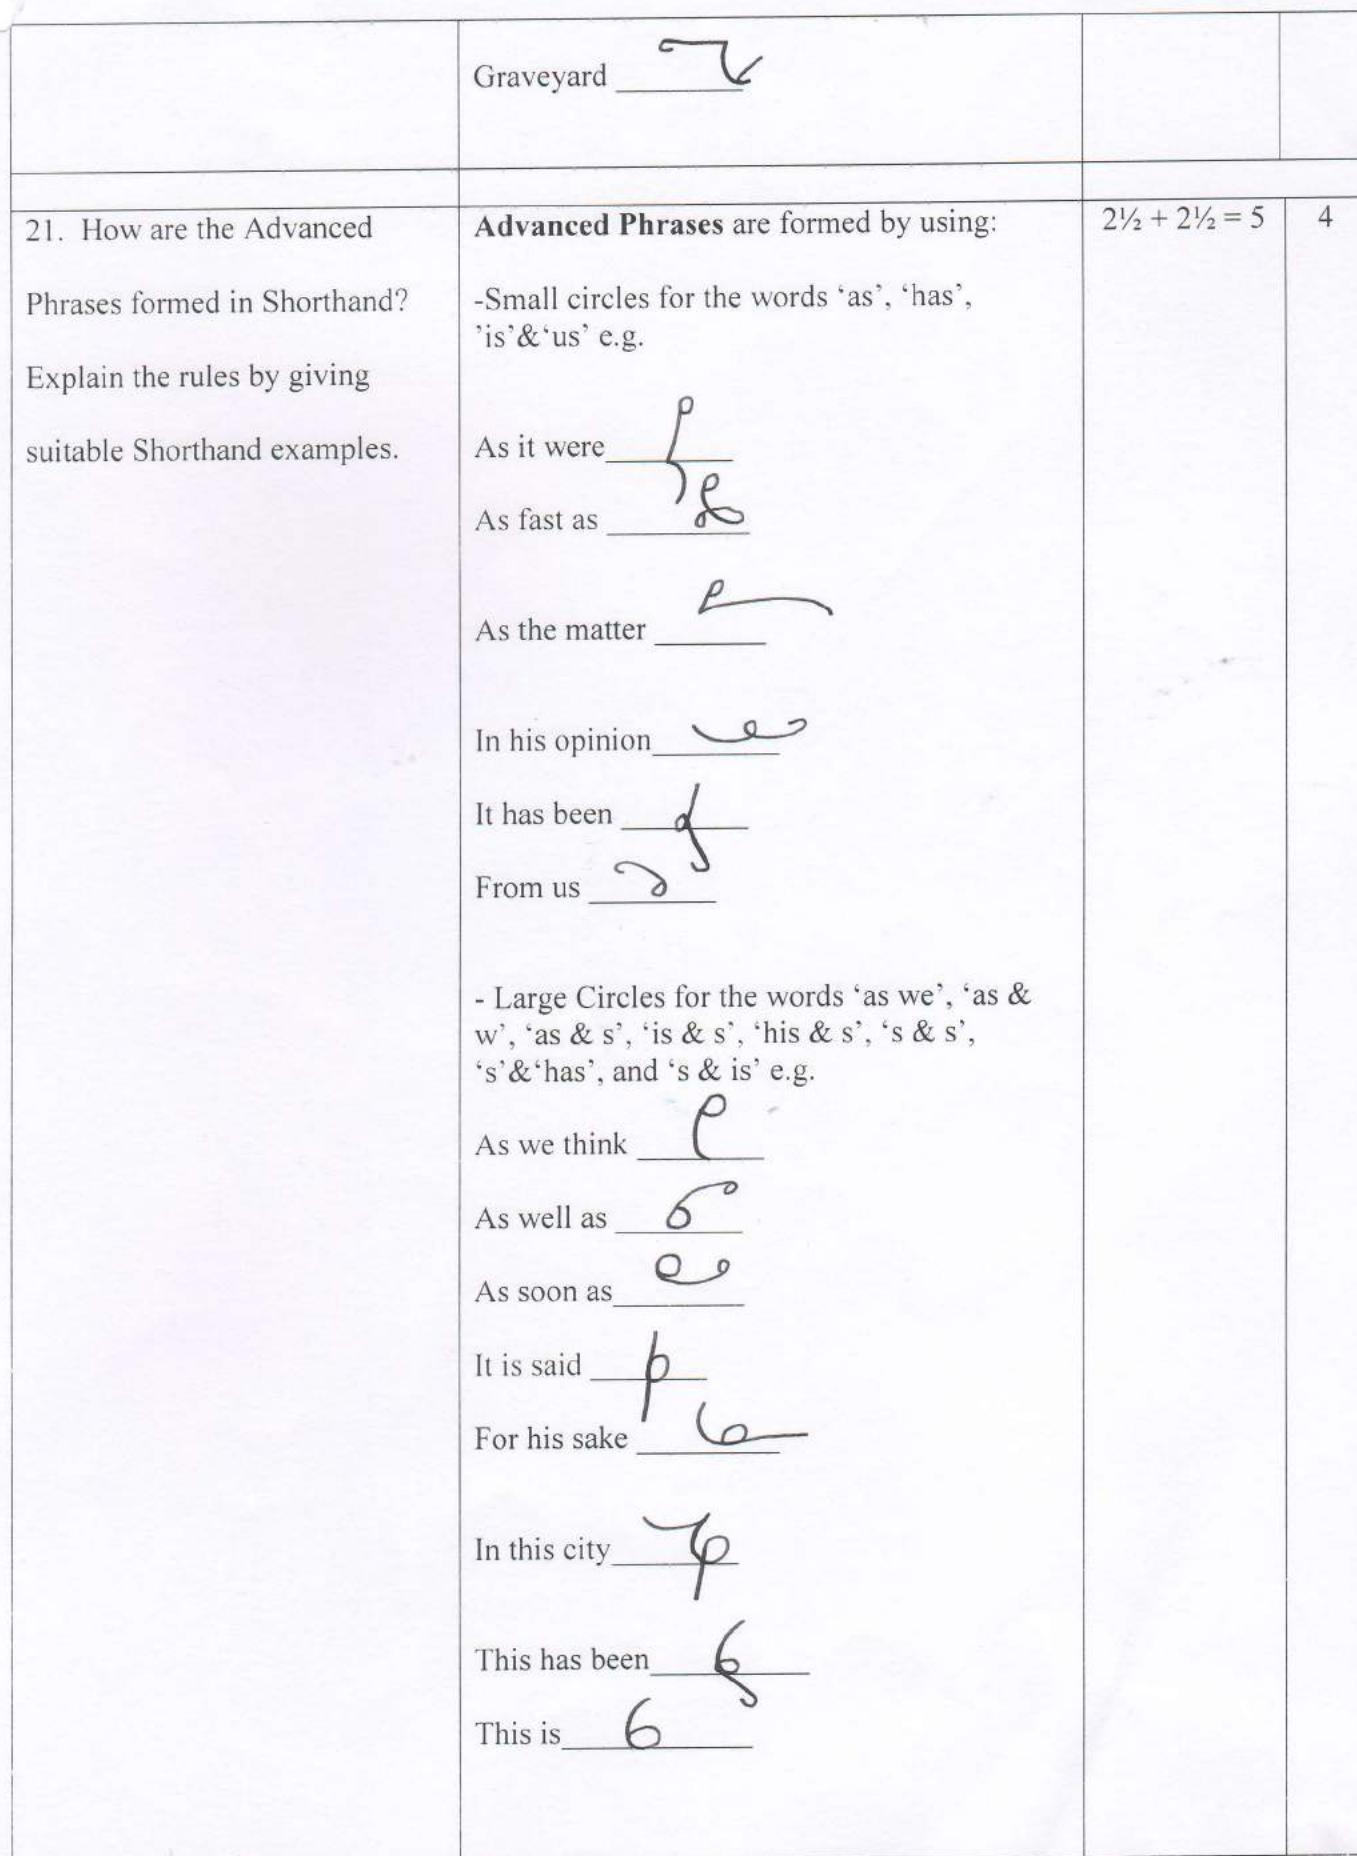 Graveyard
21. How are the Advanced
Phrases formed in Shorthand?
Explain the rules by giving
suitable Shorthand examples.
Advanced Phrases are formed by using:
-Small circles for the words ‘as’, ‘has’,
’is’&‘us’ e.g.
As it were
As fast as
As the matter
In his opinion
It has been
From us
- Large Circles for the words ‘as we’, ‘as &
w’, ‘as & s’, ‘is & s’, ‘his & s’, ‘s & s’,
‘s’&‘has’, and ‘s & is’ e.g.
As we think
As well as
As soon as
It is said
For his sake
In this city
This has been
This is
2½ + 2½ = 5
4